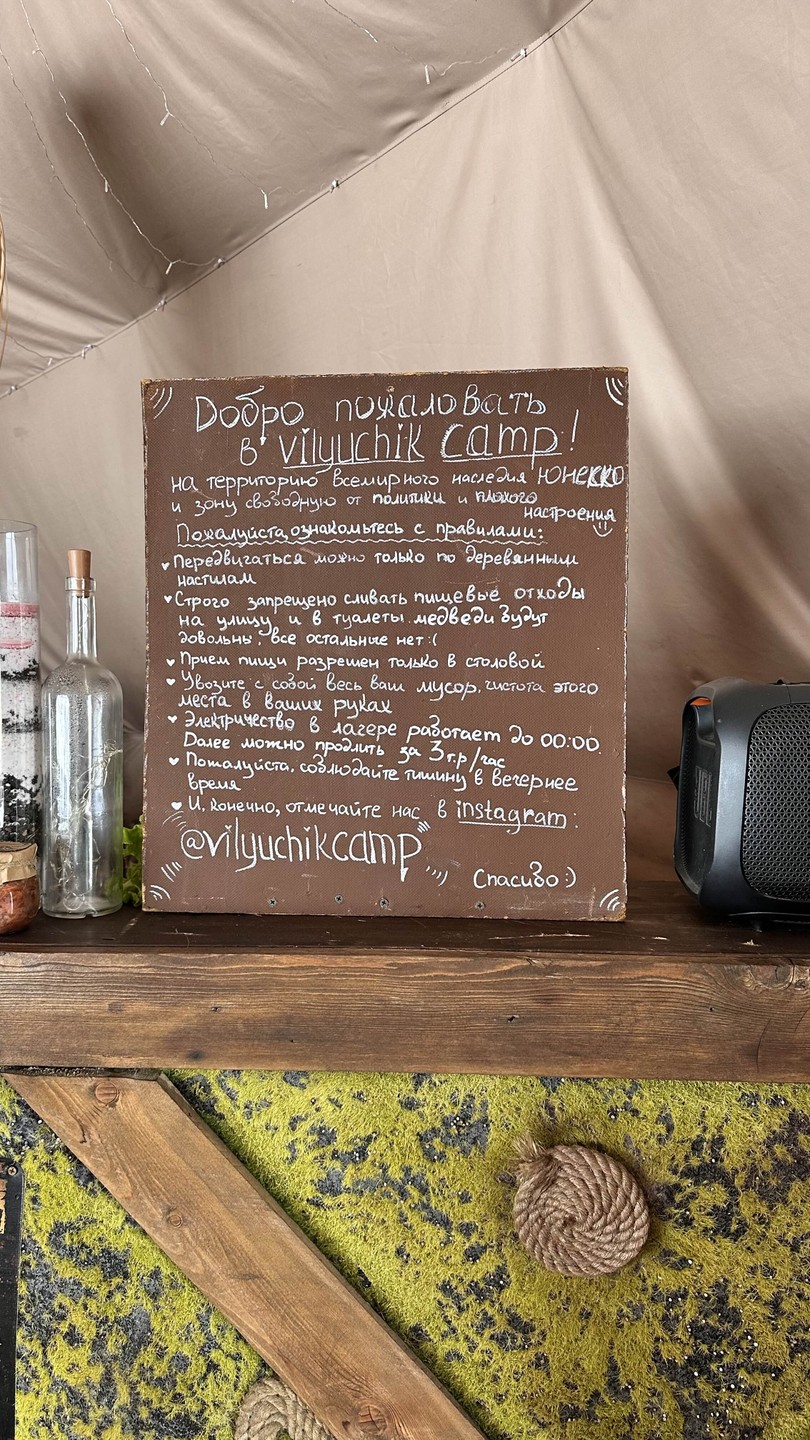 Добро пожаловать
в vilyuchik camp!
на территорию всемирного наследия ЮНЕККО
и зону свободную от политики и плохого
настроения
Пожалуйста, ознакомьтесь с правилами:
Передвигаться можно только по деревянным
настилам
Строго запрещено сливать пищевые отходы
на улицу и в туалеты. медведи будут
довольны, все остальные нет :(
Прием пищи разрешен только в столовой
Увозите с собой весь ваш мусор, чистота этого
места в ваших руках
Электричество в лагере работает до 00:00.
Далее можно продлить за 3 т.р/час
Пожалуйста, соблюдайте тишину в вечернее
время
И, конечно, отмечайте нас в instagram:
@vilyuchikcamp
Спасибо :)
JBL